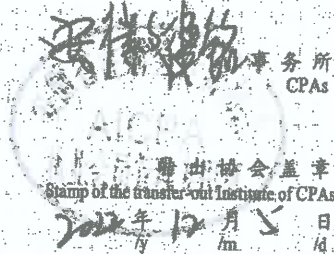 事务所
CPAs
转出协会盖章
Stamp of the transfer-out Institute of CPAs
2022年12月5日
/y /m /d